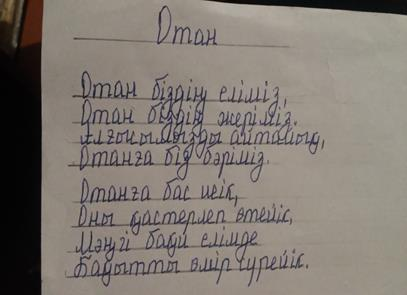 Отан
Отан біздің еліміз,
Отан біздің жеріміз.
Алғысымызды айтайық,
Отанға біз бәріміз.
Отанға бас иейік,
Оны қастерлеп өтейік,
Мәңгі бақи елімде
Бақытты өмір сүрейік.